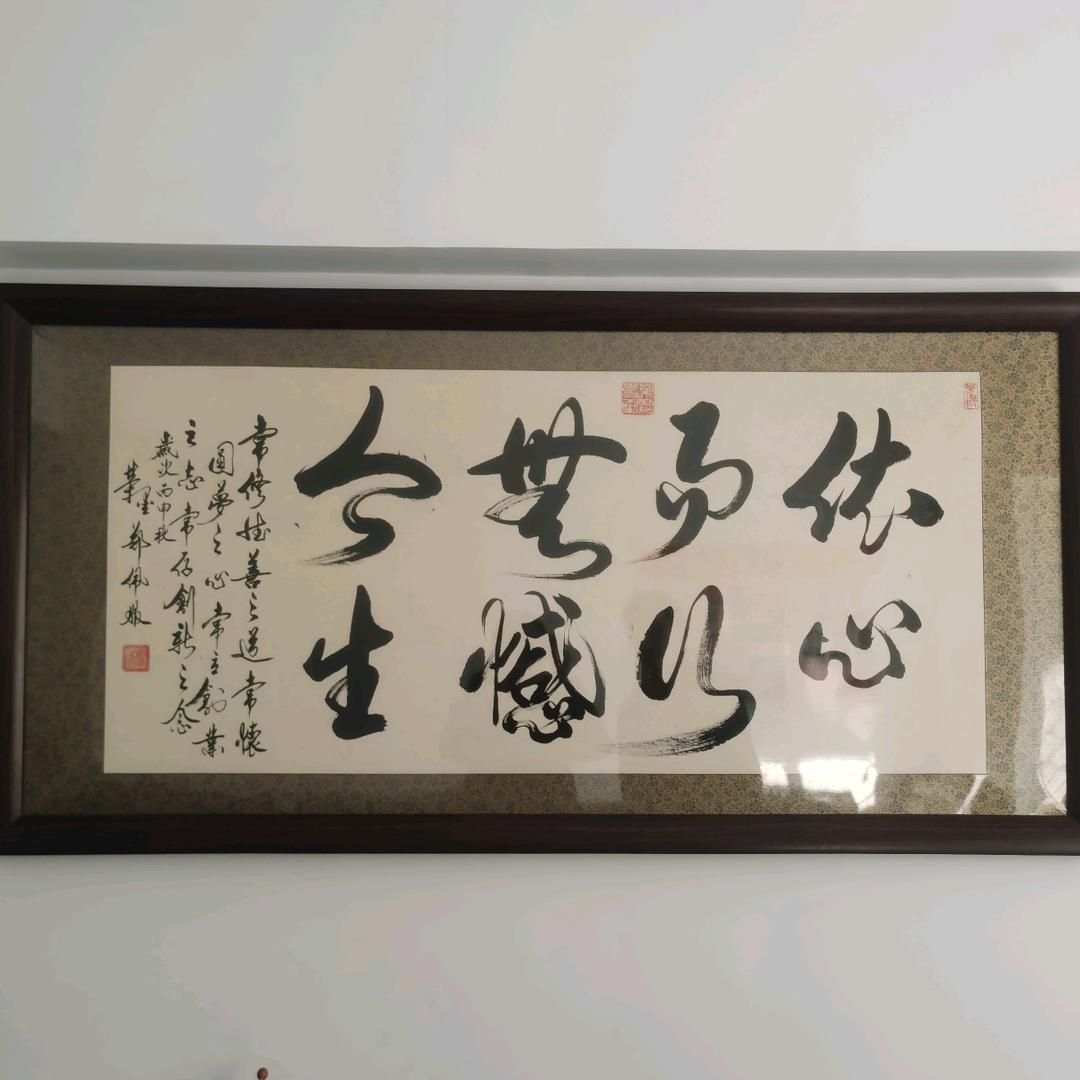 依心
而行
無憾
今生
常修德善之道常懷
圓夢之心常立創業
之志常存創新之念
歲次丙申秋
鄭佩